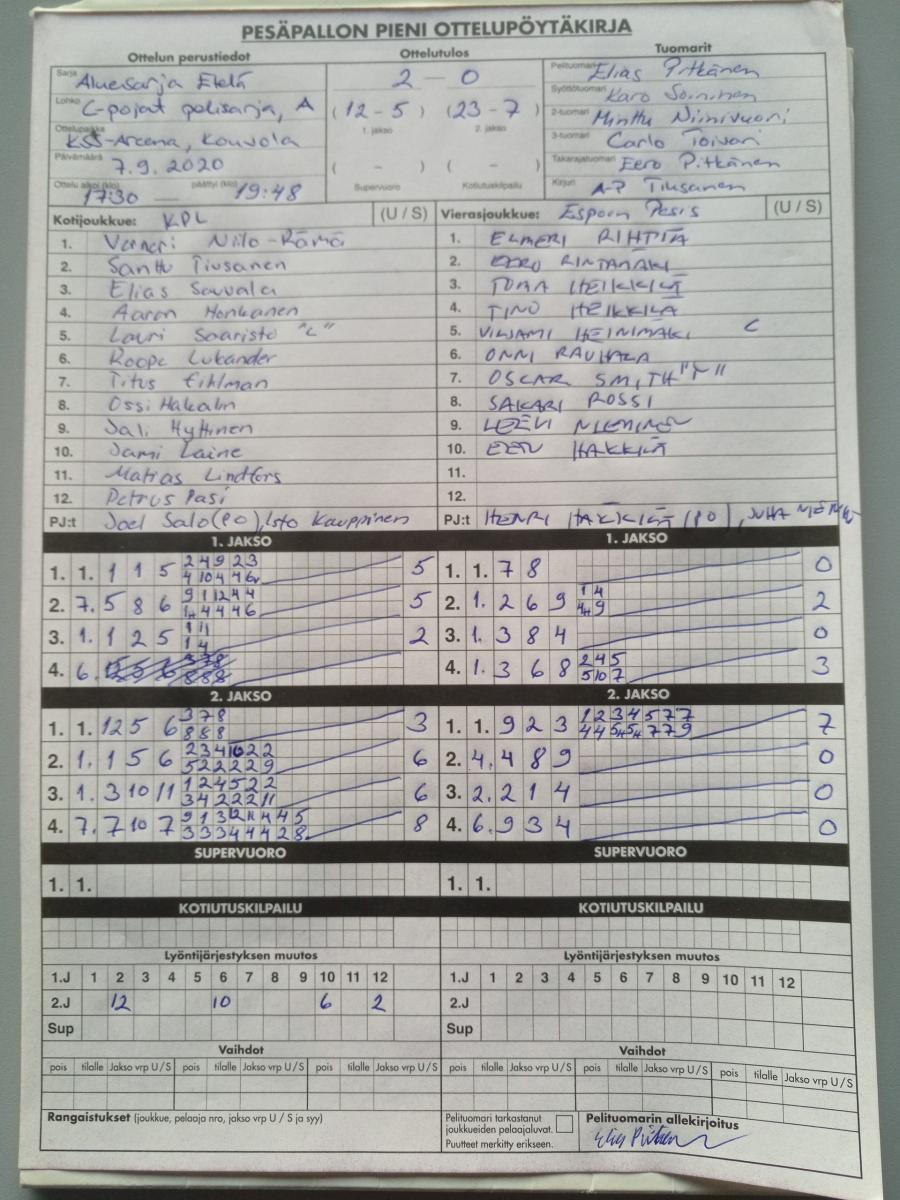 PESÄPALLON PIENI OTTELUPÖYTÄKIRJA
Ottelun perustiedot
Sarja Aluesarja Etelä
Lohko C-pojat polisarja, A
Ottelupaikka KSS-Arcena, Kouvola
Päivämäärä 7.9.2020
Ottelu alkoi (klo) 17:30 — päättyi (klo) 19:48
Ottelutulos
2 – 0
(12 - 5) (23 - 7)
1. jakso 2. jakso
( - ) ( - )
Supervuoro Kotiutuskilpailu
Tuomarit
Pelituomari Elias Pitkänen
Syöttötuomari Karo Soininen
2-tuomari Minttu Niinivuori
3-tuomari Carlo Toivari
Takarajatuomari Eero Pitkänen
Kirjuri A-P Tiusanen
Kotijoukkue: KPL (U / S)
1. Verneri Niilo-Rämä
2. Santtu Tiusanen
3. Elias Sauvala
4. Aaron Honkanen
5. Lauri Saaristo "C"
6. Roope Lukander
7. Titus Eihlman
8. Ossi Hakalm
9. Sali Hyttinen
10. Jami Laine
11. Matias Lindfors
12. Petrus Pasi
PJ:t Joel Salo(PO), Isto Kauppinen
Vierasjoukkue: Espoon Pesis (U / S)
1. ELMERI RIHTIÄ
2. EERO RINTAMÄKI
3. TOMA HEIKKILÄ
4. TINO HEIKKILÄ
5. VILJAMI HEINIMÄKI C
6. ONNI RAUHALA
7. OSCAR SMITH "T"
8. SAKARI ROSSI
9. LEEVI NIEMINEN
10. EETU HAKKILÄ
11.
12.
PJ:t HENRI HÄKKILÄ (PO), JUHA
1. JAKSO
1. 1. 1 1 5 2 4 9 2 3 5
4 10 4 4 6
2. 7. 5 8 6 9 1 12 4 4 5
4 4 4 6
3. 1. 1 2 5 1 11 2
1 4
4. 6.
1. JAKSO
1. 1. 7 8 0
2. 1. 2 6 9 1 4 2
4 9
3. 1. 3 8 4 0
4. 1. 3 6 8 2 4 5 3
5 10 7
2. JAKSO
1. 1. 12 5 6 3 7 8 3
8 8 8
2. 1. 1 5 6 2 3 4 10 2 2 6
5 2 2 2 2 9
3. 1. 3 10 11 1 2 4 5 2 2 6
3 4 2 2 2 11
4. 7. 7 10 7 9 1 3 12 11 4 4 5 8
3 3 3 4 4 4 2 8
2. JAKSO
1. 1. 9 2 3 1 2 3 4 5 7 7 7
4 4 5 5 7 7 9
2. 4. 4 8 9 0
3. 2. 2 1 4 0
4. 6. 9 3 4 0
SUPERVUORO
1. 1.
SUPERVUORO
1. 1.
KOTIUTUSKILPAILU
KOTIUTUSKILPAILU
Lyöntijärjestyksen muutos
1.J 1 2 3 4 5 6 7 8 9 10 11 12
2.J 12 10 6 2
Sup
Lyöntijärjestyksen muutos
1.J 1 2 3 4 5 6 7 8 9 10 11 12
2.J
Sup
Vaihdot
pois tilalle Jakso vrp U / S pois tilalle Jakso vrp U / S pois tilalle Jakso vrp U / S
Vaihdot
pois tilalle Jakso vrp U / S pois tilalle Jakso vrp U / S pois tilalle Jakso vrp U / S
Rangaistukset (joukkue, pelaaja nro, jakso vrp U / S ja syy)
Pelituomari tarkastanut
joukkueiden pelaajaluvat.
Puutteet merkitty erikseen.
Pelituomarin allekirjoitus